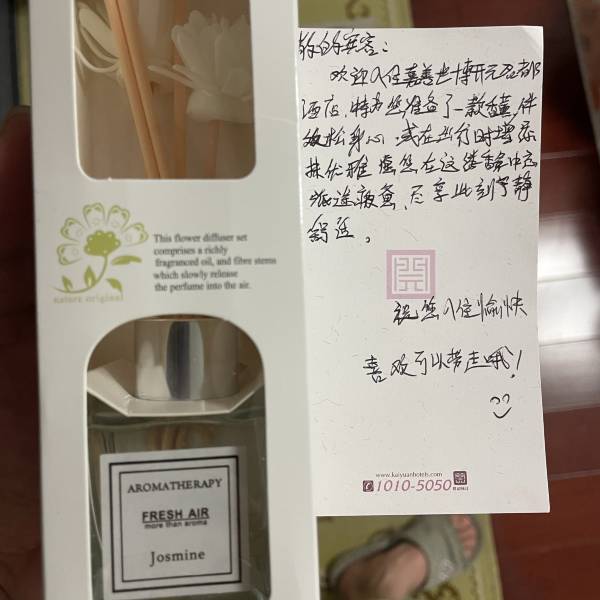 This flower diffuser set
comprises a richly
fragranced oil, and fibre stems
which slowly release
the perfume into the air.
nature original
AROMATHERAPY
FRESH AIR
more than aroma
Josmine
的宾客：
欢迎入住嘉善世博开元名都
酒店，特为您准备了一款香薰，伴
放松身心，或在出行时增添
抹优雅，愿您在这缕香氛中
旅途疲惫，尽享此刻宁静
舒适。
祝您入住愉快
喜欢可以带走哦！
www.kaiyuanhotels.com
1010-5050